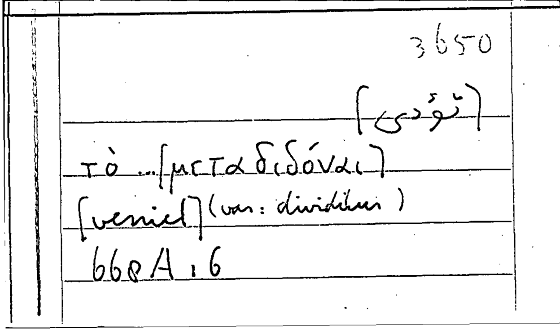 3650
[تؤدى]
τὸ ... [μεταδιδόναι]
[veniet] (var: dividitur)
668A,6